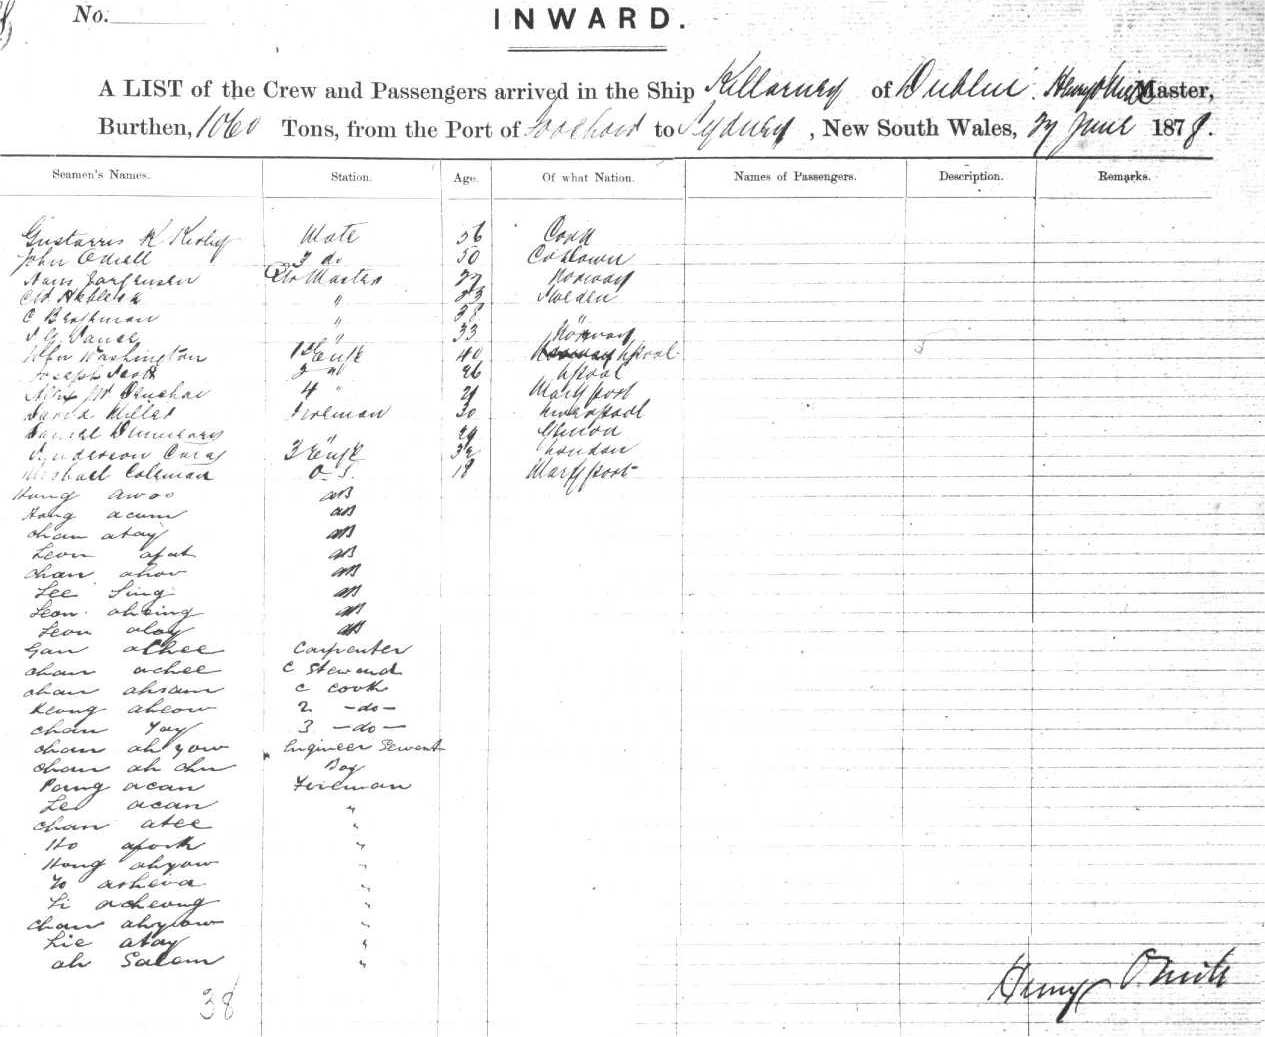 No.
INWARD.
A LIST of the Crew and Passengers arrived in the Ship Killarney of Dublin. Henry O'Neill Master,
Burthen, 1060 Tons, from the Port of Foochow to Sydney, New South Wales, 27 June 1878.
Seamen's Names. Station. Age. Of what Nation. Names of Passengers. Description. Remarks.
K Mate 56 Cork
John O'Neill 2 do 50
Hans Jorgensen Qtr Master 27 Norway
" 23 Sweden
C " 38 "
33 Norway
John Washington 1st Engr 40 Norway Lpool
Joseph 2 " 26 Lpool
4 " 21 Maryport
David Miller Fireman 30 Liverpool
Samuel " 29
Anderson 3 Engr 32 London
Michael Coleman O.S. 18 Maryport
Hong awoo AB
Hong acum AB
chan atay AB
Leon afat AB
chan ahoo AB
Lee Sing AB
Leon ahsing AB
Leon aloy AB
Gan athee Carpenter
chan achee C Steward
chan ahsam C Cook
Keong ahcow 2 -do-
chan Yay 3 -do-
chan ah yow Engineer Servant
chan ah chu Boy
Pang acan Fireman
Le acan "
chan atee "
Ho afook "
Hong ahyow "
Yo "
Li acheong "
chan ahyow "
Lie atay "
ah Salam "
38
Henry O'Neill